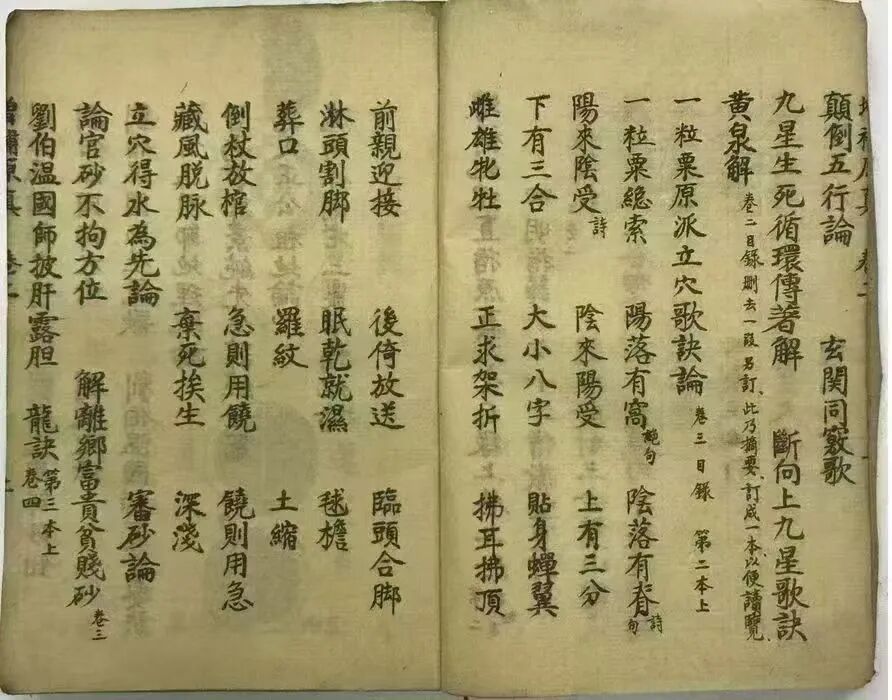 顛倒五行論　玄関同竅歌
九星生死循環傳著解　斷向上九星歌訣
黄泉解　卷二目錄刪去一段另訂、此乃摘要、訂成一本、以便讀覽、
一粒粟原派立穴歌訣論　卷三目錄　第二本上
一粒粟總索　陽落有窩　絕句　陰落有脊　詩句
陽來陰受　詩　陰來陽受　上有三分
下有三合　大小八字　貼身蟬翼
雌雄牝牡　正求架折　拂耳拂頂
前親迎接　後倚放送　臨頭合脚
淋頭割脚　眠乾就濕　毬檐
葬口　羅紋　土縮
倒杖放棺　急則用饒　饒則用急
藏風脱脉　棄死挨生　深淺
立穴得水為先論　審砂論
論官砂不拘方位　解離鄉富貴貧賤砂　卷三
劉伯温國師披肝露胆　龍訣　第三本上　卷四